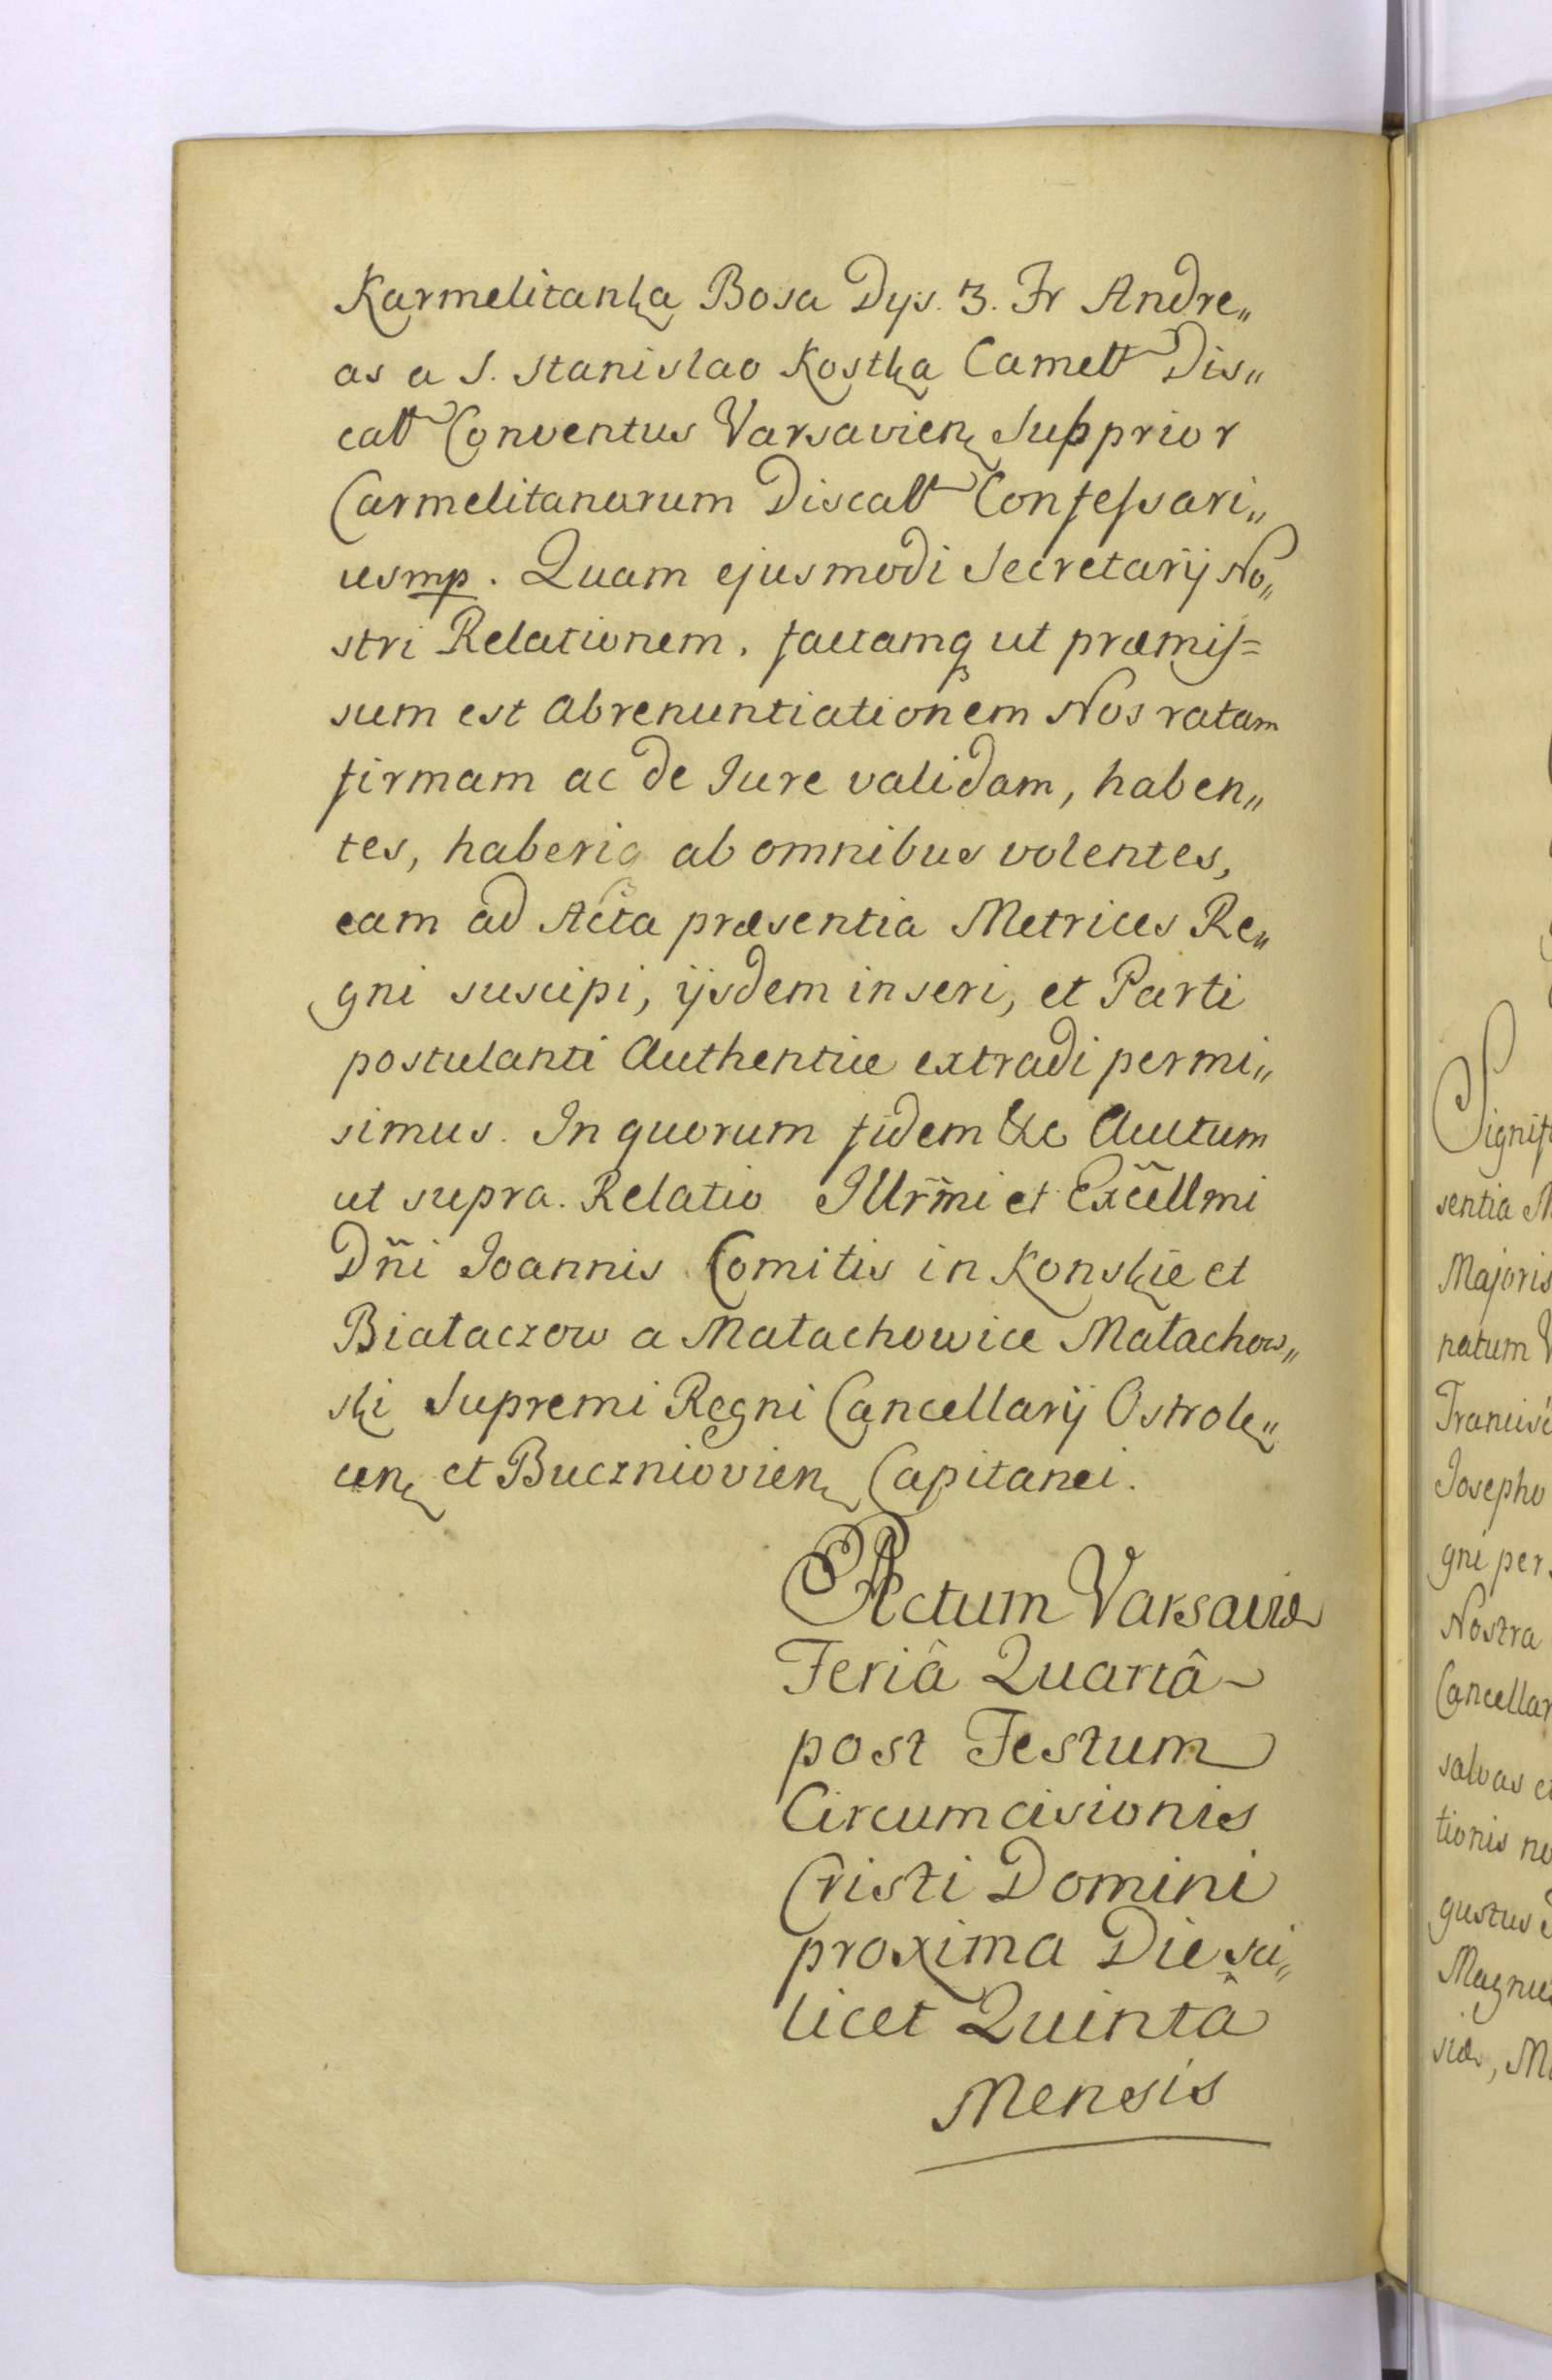 Karmelitanka Bosa Dys. 3. Fr Andre„
as a S. Stanislao Kostka Camelt Dis„
calt Conventus Varsavien Supprior
Carmelitanarum Discalt Confessari„
us mp. Quam ejusmodi Secretarij No„
stri Relationem, factamq ut præmis=
sum est Abrenuntiationem Nos ratam
firmam ac de Jure validam, haben„
tes, haberiq ab omnibus volentes,
eam ad Acta præsentia Metrices Re„
gni suscipi, ijsdem inseri, et Parti
postulanti Authentice extradi permi„
simus. In quorum fidem &c Actum
ut supra. Relatio Illr̃mi et Excellmi
Dñi Joannis Comitis in Konskie et
Białaczow a Małachowice Małachow„
ski Supremi Regni Cancellarij Ostrole„
cen et Buczniovien Capitanei.
Actum Varsaviæ
Feriâ Quartâ
post Festum
Circumcisionis
Cristi Domini
proxima Die sci„
licet Quintâ
Mensis
Signif
sentia M
Majoris
natum V
Francisc
Josepho
gni per
Nostra
Cancellar
salvas et
tionis no
gustus
Magnus
siæ, Ma